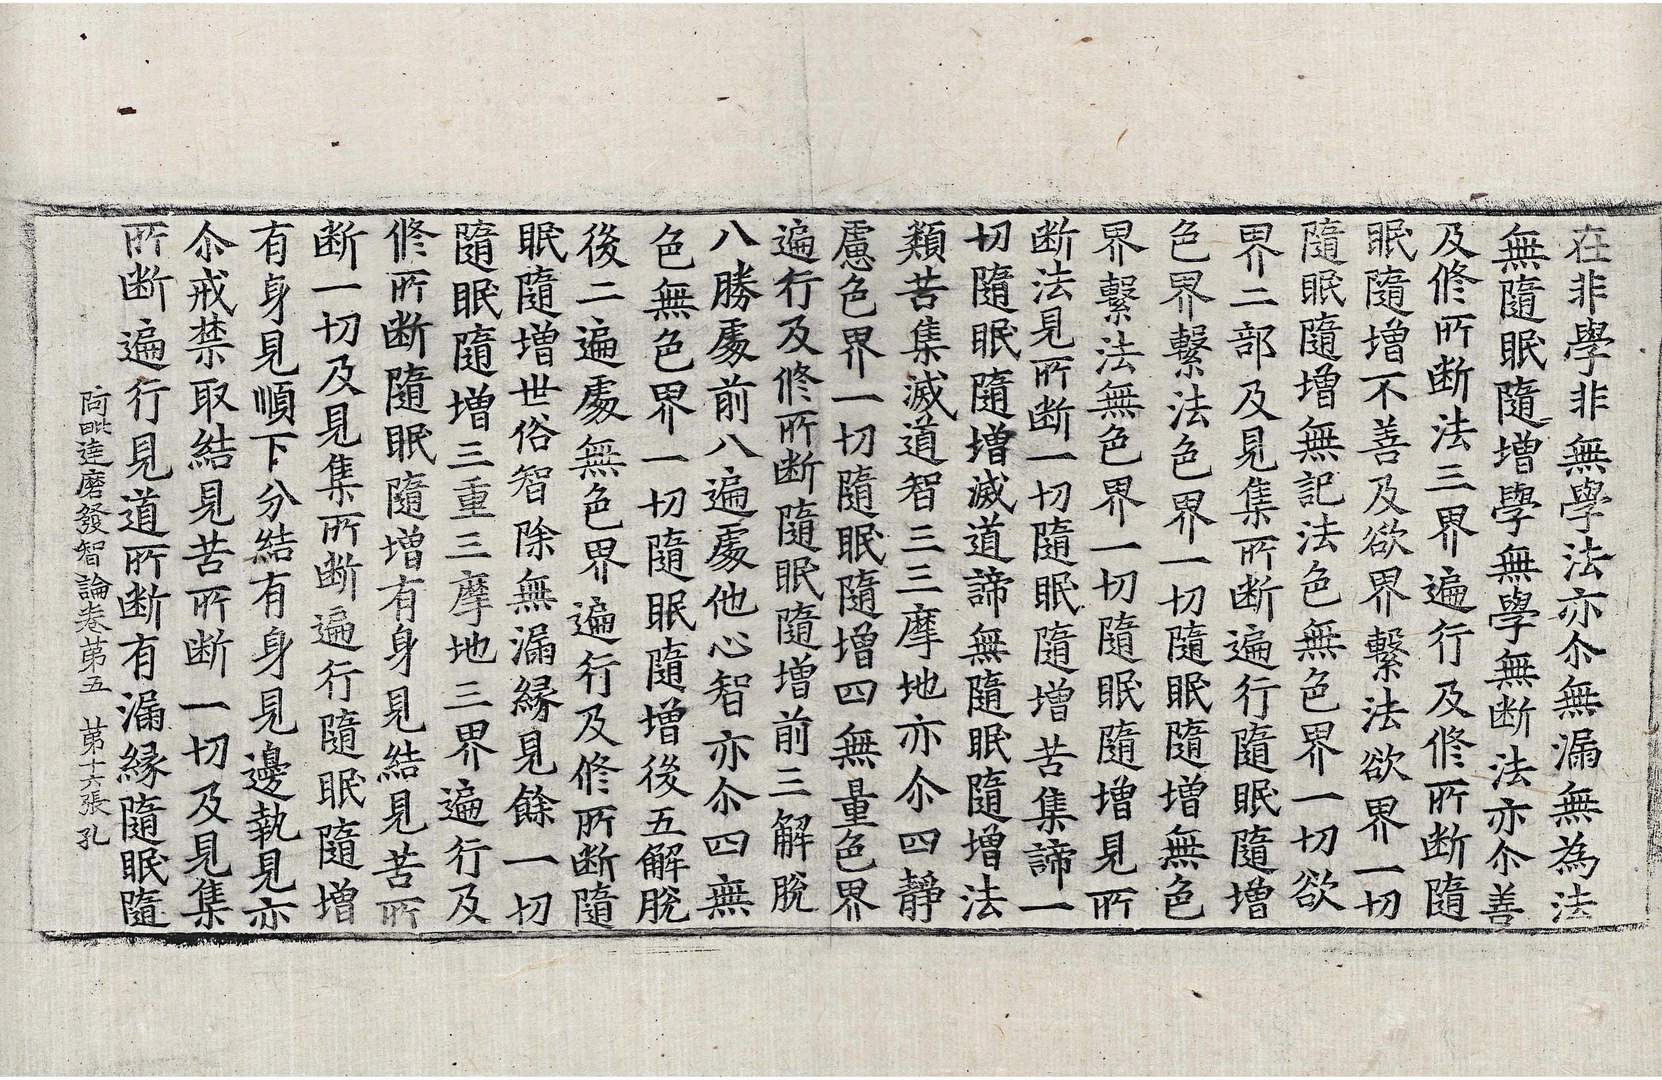 在非學非無學法亦尒無漏無為法
無隨眠隨增學無學無断法亦尒善
及修所断法三界遍行及修所断隨
眠隨增不善及欲界繫法欲界一切
隨眠隨增無記法色無色界一切欲
界二部及見集所断遍行隨眠隨增
色界繫法色界一切隨眠隨增無色
界繫法無色界一切隨眠隨增見所
断法見所断一切隨眠隨增苦集諦一
切隨眠隨增滅道諦無隨眠隨增法
類苦集滅道智三三摩地亦尒四靜
慮色界一切隨眠隨增四無量色界
遍行及修所断隨眠隨增前三解脫
八勝處前八遍處他心智亦尒四無
色無色界一切隨眠隨增後五解脫
後二遍處無色界遍行及修所断隨
眠隨增世俗智除無漏縁見餘一切
隨眠隨增三重三摩地三界遍行及
修所断隨眠隨增有身見結見苦所
断一切及見集所断遍行隨眠隨增
有身見順下分結有身見邊執見亦
尒戒禁取結見苦所断一切及見集
所断遍行見道所断有漏縁隨眠隨
阿毗達磨發智論卷第五 第十六張 孔